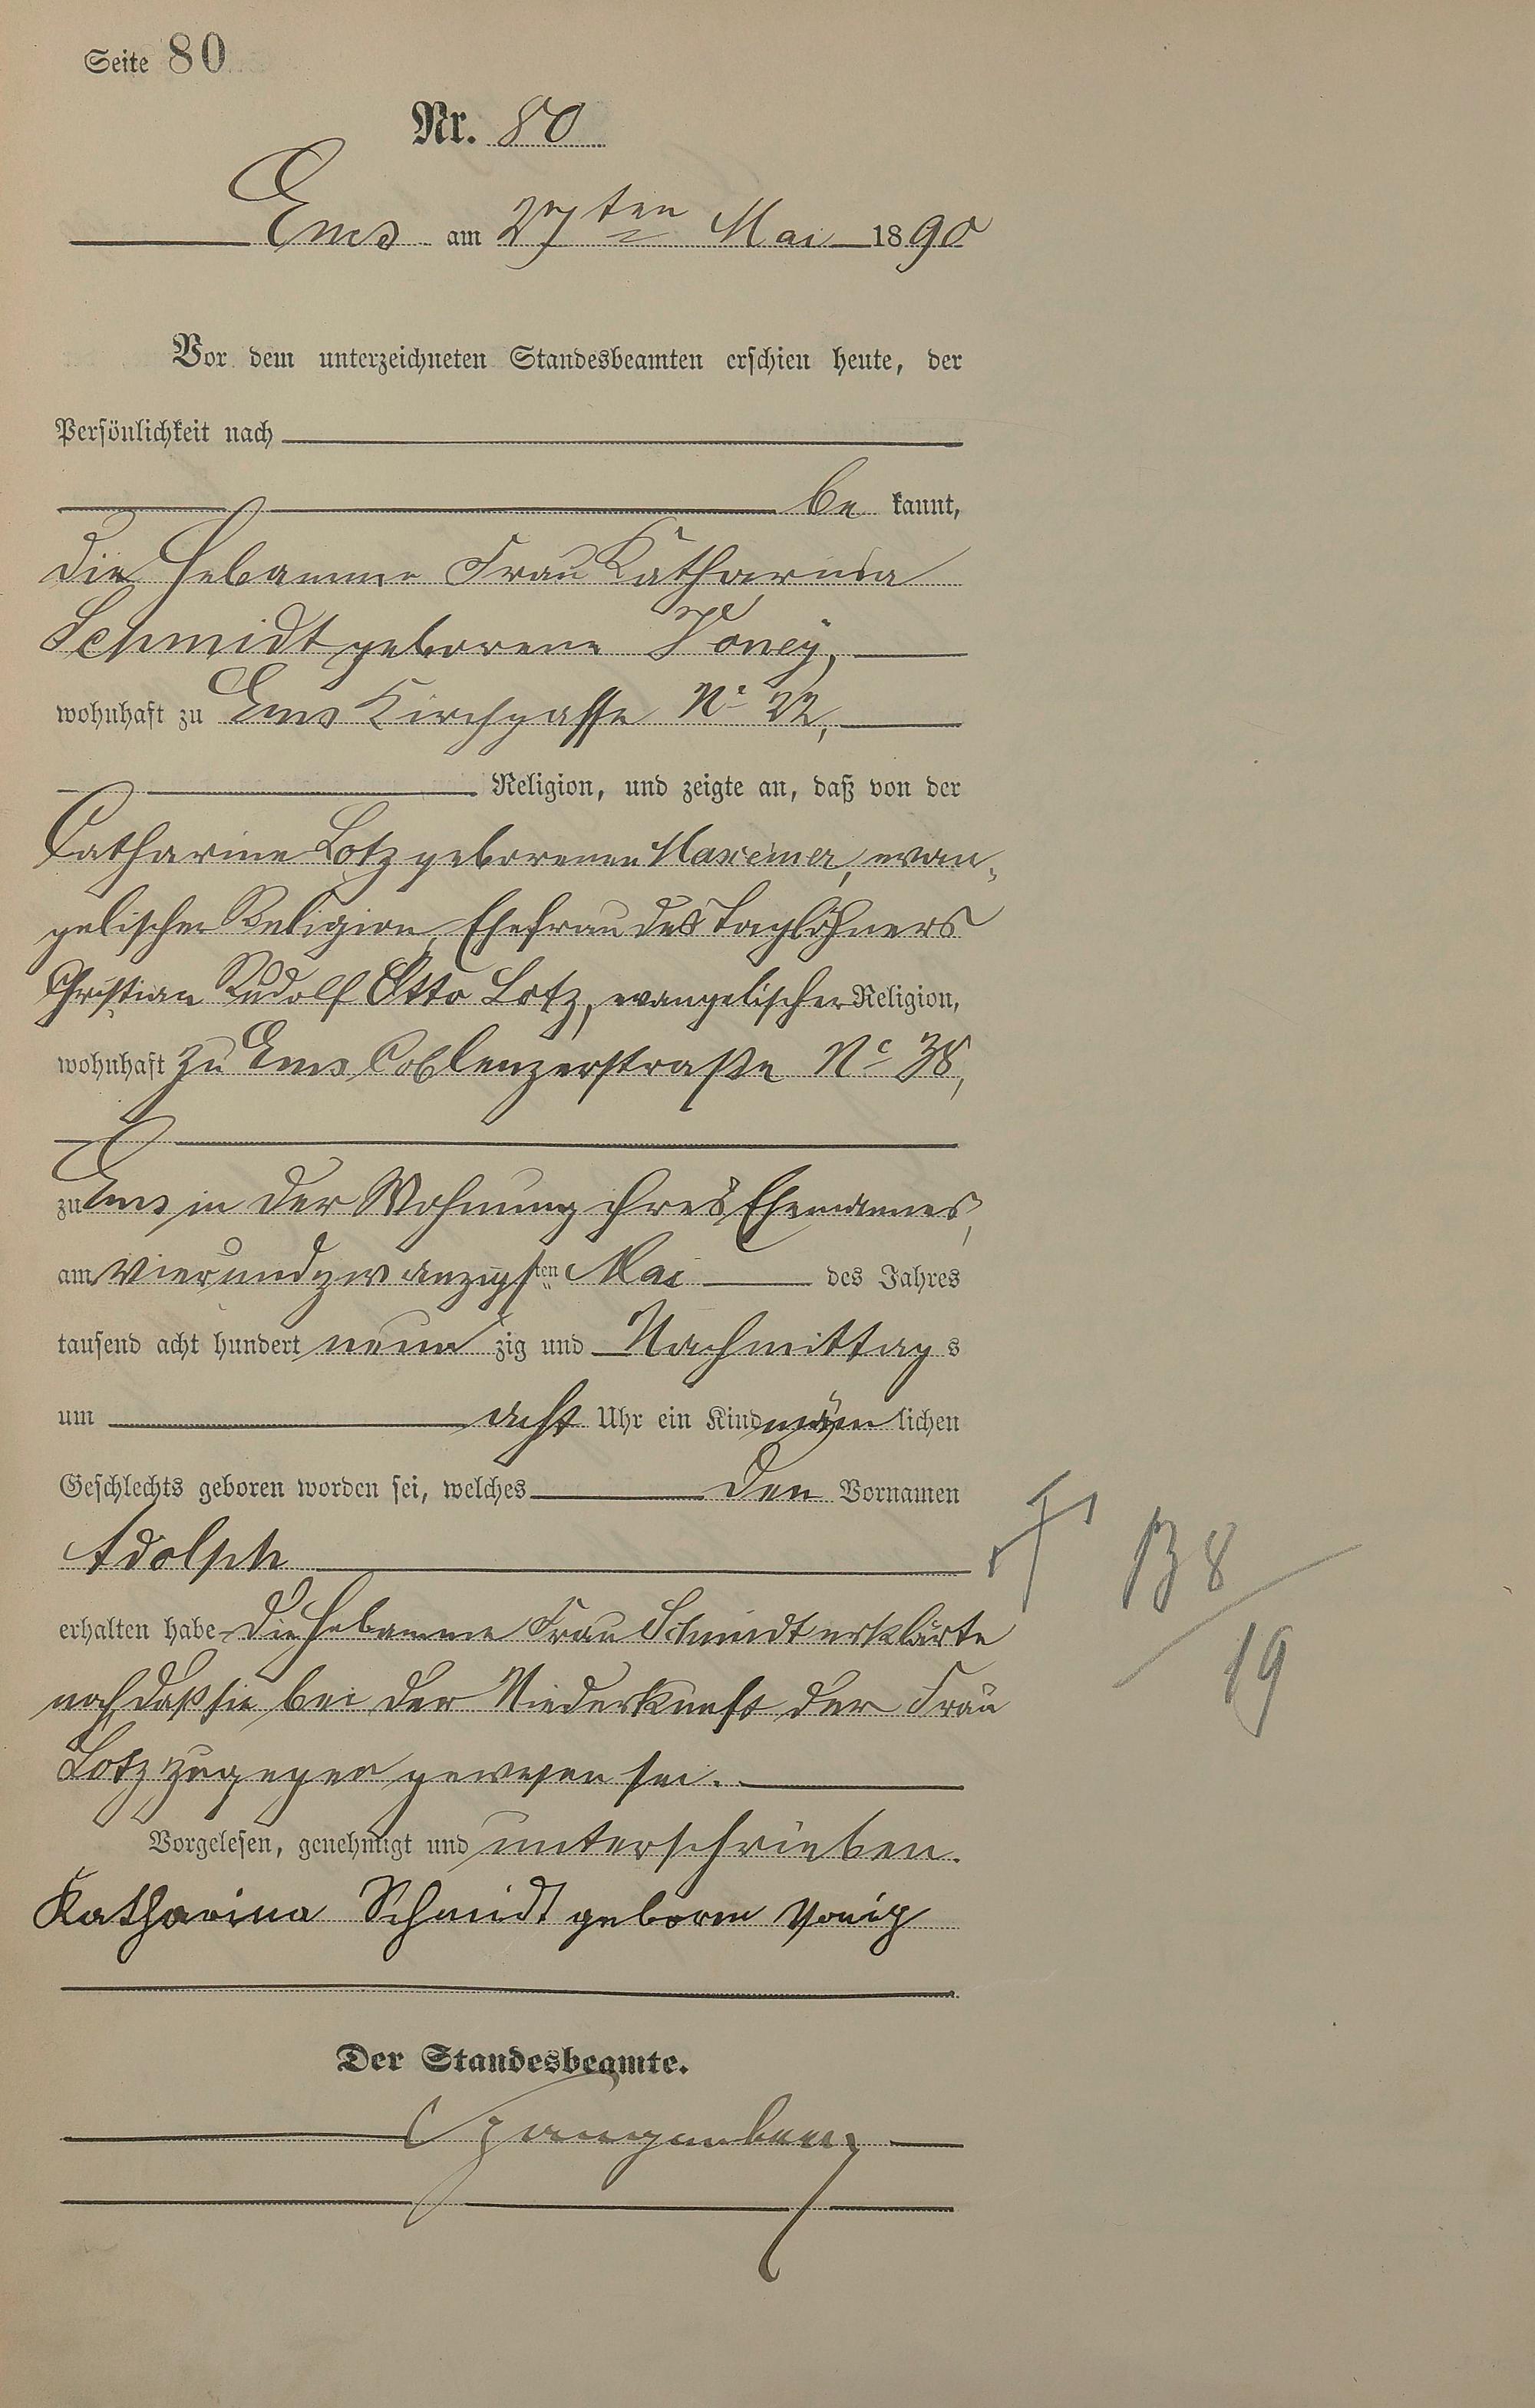 Seite 80
Nr. 80
Ems am 27ten Mai 1890
Vor dem unterzeichneten Standesbeamten erschien heute, der
Persönlichkeit nach
be kannt,
die Hebamme Frau Katharina
Schmidt geborene
wohnhaft zu Ems Kirchgasse No 22,
Religion, und zeigte an, daß von der
Catharine Lotz geborenen Maxeiner, evan-
gelischer Religion, Ehefrau des Taglöhners
Christian Rudolf Otto Lotz, evangelischer Religion,
wohnhaft zu Ems Coblenzerstraße No 38,
zu Ems in der Wohnung ihres Ehemannes,
am vierundzwanzigsten Mai des Jahres
tausend acht hundert neun zig und Nachmittag s
um acht Uhr ein Kind männ lichen
Geschlechts geboren worden sei, welches den Vornamen
Adolph
erhalten habe Die Hebamme Frau Schmidt erklärte
noch, daß sie bei der Niederkunft der Frau
Lotz zugegen gewesen sei.
Vorgelesen, genehmigt und unterschrieben.
Katharina Schmidt geboren
Der Standesbeamte.
B 8
19